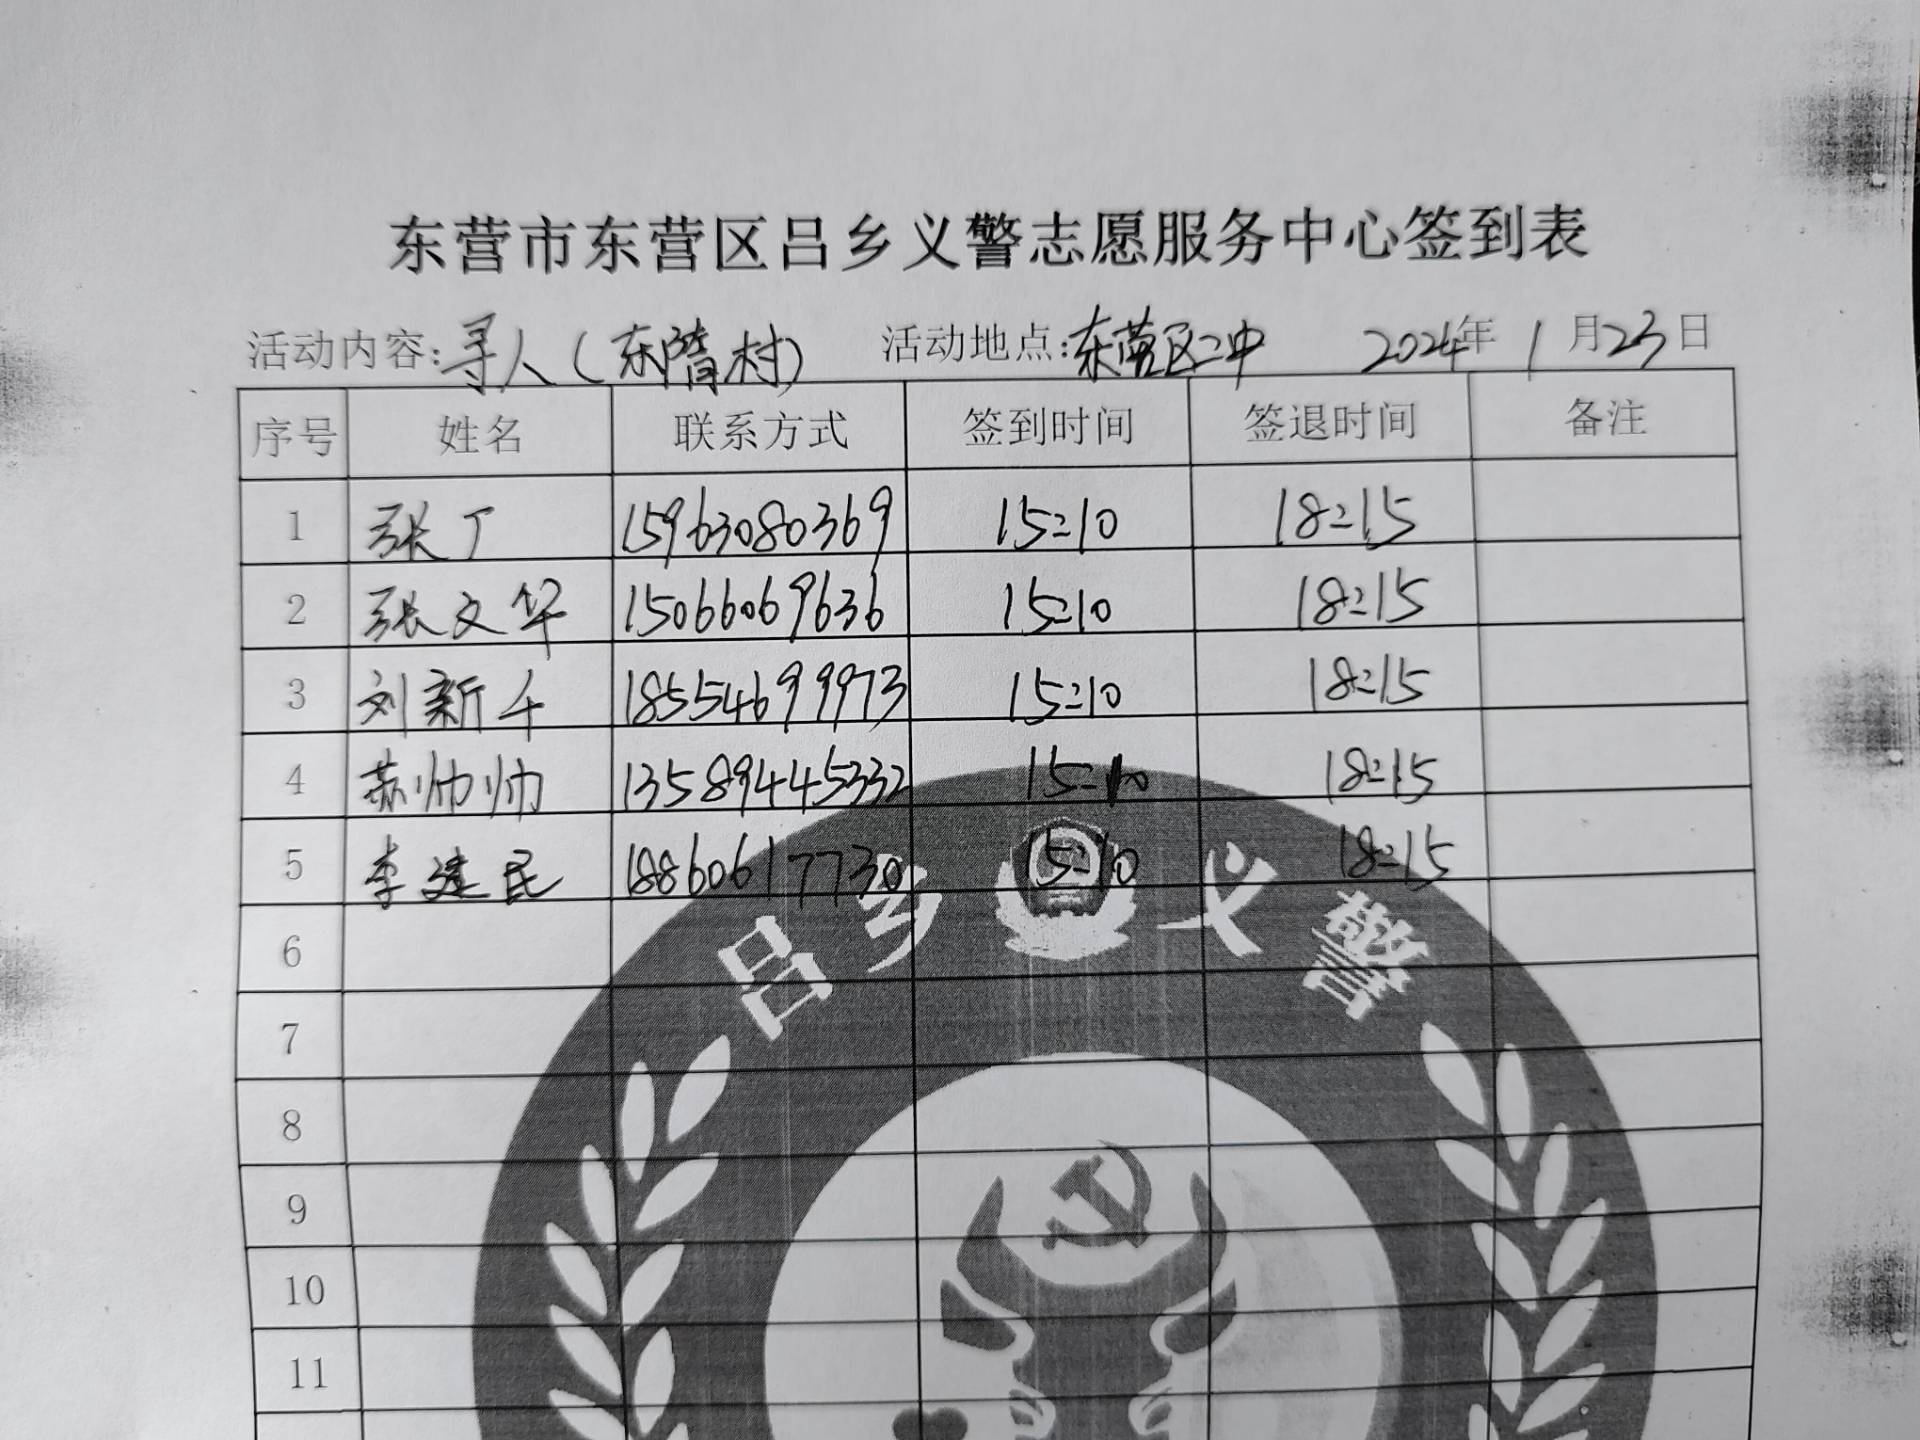 东营市东营区吕乡义警志愿服务中心签到表
活动内容:寻人(东隋村) 活动地点:东营区二中 2024年1月23日
序号 姓名 联系方式 签到时间 签退时间 备注
1 张丁 15963080369 15:10 18:15
2 张文华 15066069636 15:10 18:15
3 刘新 18554699973 15:10 18:15
4 苏帅帅 13589445332 15:10 18:15
5 李建民 18860617730 15:10 18:15
6
7
8
9
10
11
吕乡义警